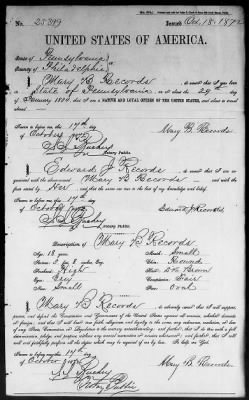 No. 25399 Issued Oct. 18. 1872
UNITED STATES OF AMERICA.
State of Pennsylvania
County of Philadelphia
I, Mary B Records do swear that I was born in the
State of Pennsylvania on the 29th day of
January 18 that I am a NATIVE AND LOYAL CITIZEN OF THE UNITED STATES, and about to travel
abroad.
Sworn to before me, this 17th day
of October Mary B Records
Notary Public.
I, Edward J Records do swear that I am
acquainted with the above-named Mary B Records and with the
facts by Her are true to the best of my knowledge and belief.
Sworn to before me, this 17th day
of October Edward J Records
Notary Public.
Description of Mary B Records
Age: 18 years Mouth: Small
Stature: 5 feet 8 inches, Eng. Chin: Round
Forehead: High Hair: Brown
Eyes: Grey Complexion: Fair
Nose: Small Face: Oval
I, Mary B Records do solemnly swear that I will support,
protect, and defend the Constitution and Government of the United States against all enemies, whether domestic
or foreign; and that I will bear true faith, allegiance and loyalty to the same, any ordinance, resolution, or law
of any State, Convention or Legislature to the contrary notwithstanding; and further, that I do this with a full
determination, pledge, and purpose, without any mental reservation or evasion whatsoever; and further, that I will
well and faithfully perform all the duties which may be required of me by law. So help me God.
Sworn to before me, this 17th
day of October Mary B Records
Notary Public